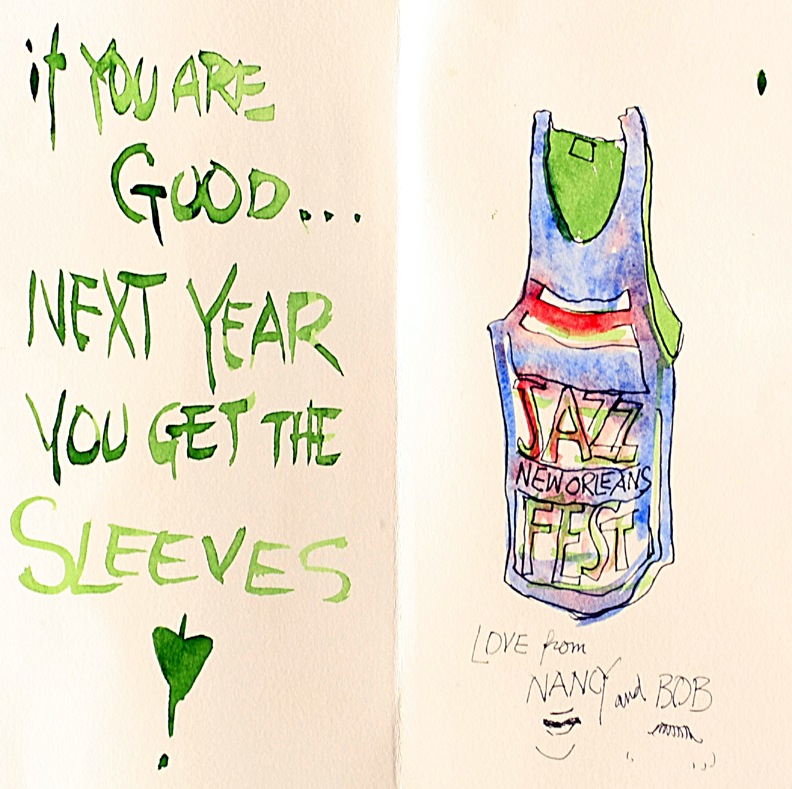 if YOU ARE
GOOD...
NEXT YEAR
YOU GET THE
SLEEVES
!
JAZZ
NEW ORLEANS
FEST
LOVE from
NANCY and BOB